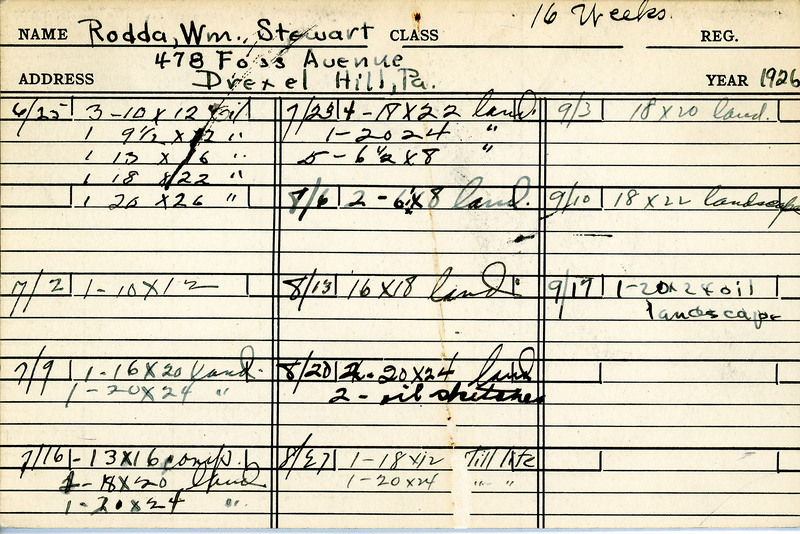 16 Weeks.
NAME Rodda, Wm., Stewart CLASS REG.
478 Foss Avenue
ADDRESS Drexel Hill, Pa. YEAR 1926
6/25 3-10 x 12 oil
1 9½ x 12 "
1 13 x 16 "
1 18 x 22 "
1 20 x 26 "
7/2 1-10 x 12
7/9 1-16 x 20 land.
1-20 x 24 "
7/16 1-13 x 16 comp.
1-18 x 20 land
1-20 x 24 "
7/23 4-17 x 22 land.
1-20 24 "
5-6½ x 8 "
8/6 2-6½ x 8 land.
8/13 16 x 18 land.
8/20 2-20 x 24 land
2-oil sketches
8/27 1-18 x 12 Still life
1-20 x 24 " "
9/3 18 x 20 land.
9/10 18 x 22 landscape
9/17 1-20 x 24 oil
landscape